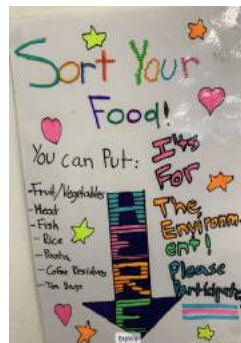 Sort Your
Food!
You can Put:
-Fruit/Vegetables
-Meat
-Fish
-Rice
-Pasta
-Coffee Residues
-Tea Bags
HERE
It's
For
The
Environm
ent!
Please
Participate